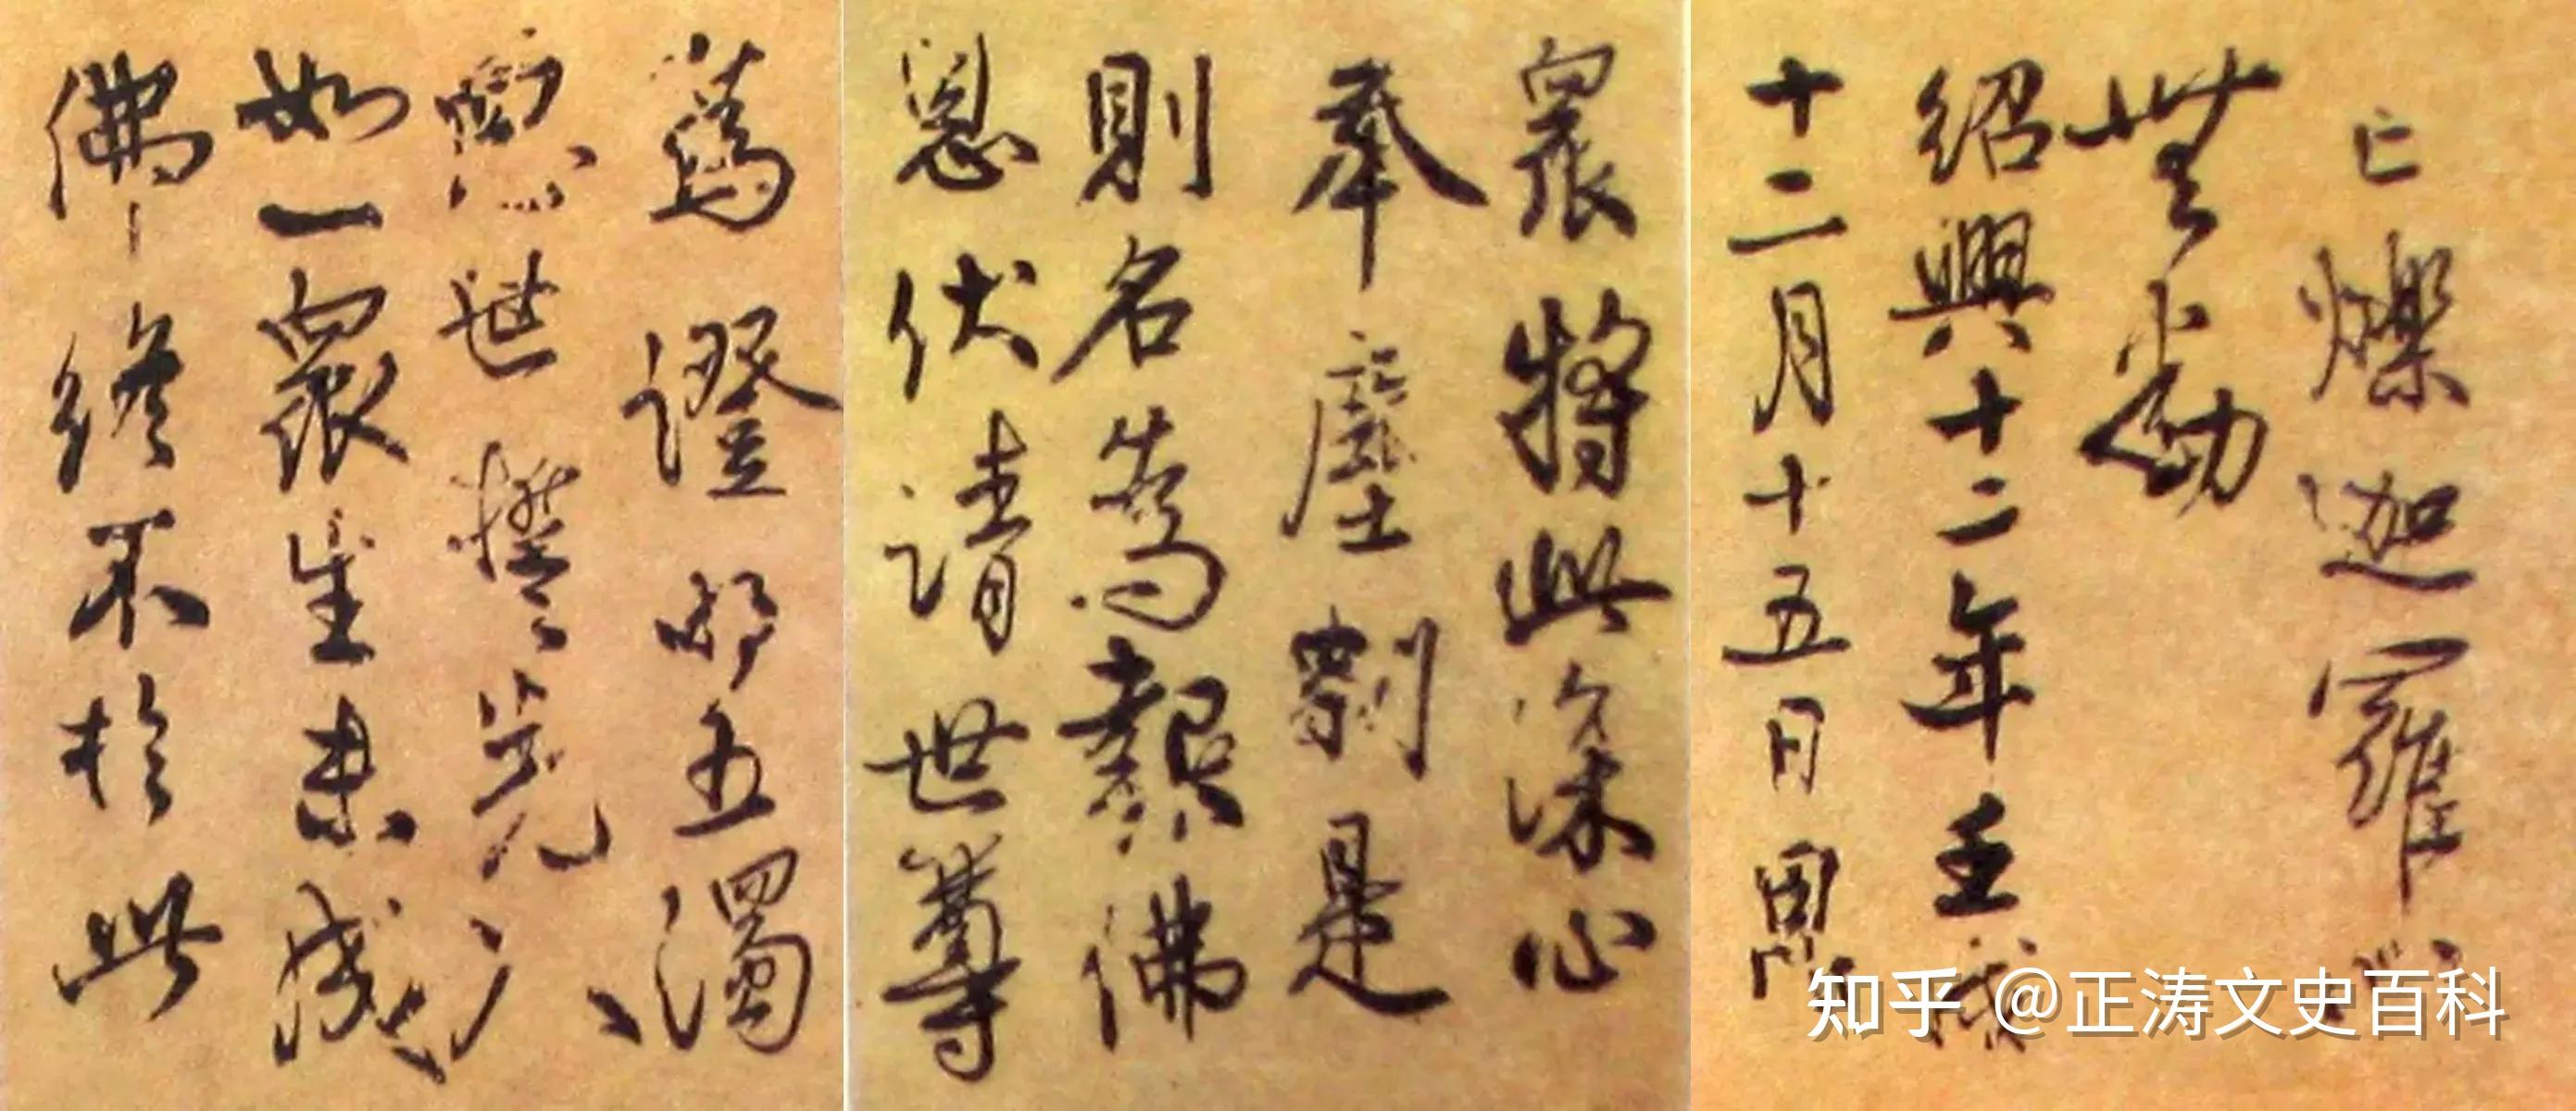 亡爍迦羅心
無動
紹興十二年壬戌
十二月十五日
眾將此深心
奉塵刹是
則名為報佛
恩伏請世尊
為證明五濁
惡世誓先入
如一眾生未成
佛終不於此
知乎 @正涛文史百科